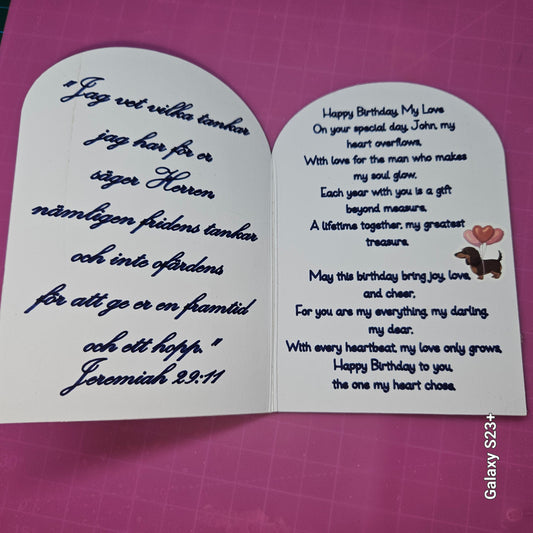 "Jag vet vilka tankar
jag har för er
säger Herren,
nämligen fridens tankar
och inte ofärdens
för att ge er en framtid
och ett hopp."
Jeremiah 29:11
Happy Birthday, My Love
On your special day, John, my
heart overflows,
With love for the man who makes
my soul glow.
Each year with you is a gift
beyond measure,
A lifetime together, my greatest
treasure.
May this birthday bring joy, love,
and cheer,
For you are my everything, my darling,
my dear.
With every heartbeat, my love only grows,
Happy Birthday to you,
the one my heart chose.
Galaxy S23+